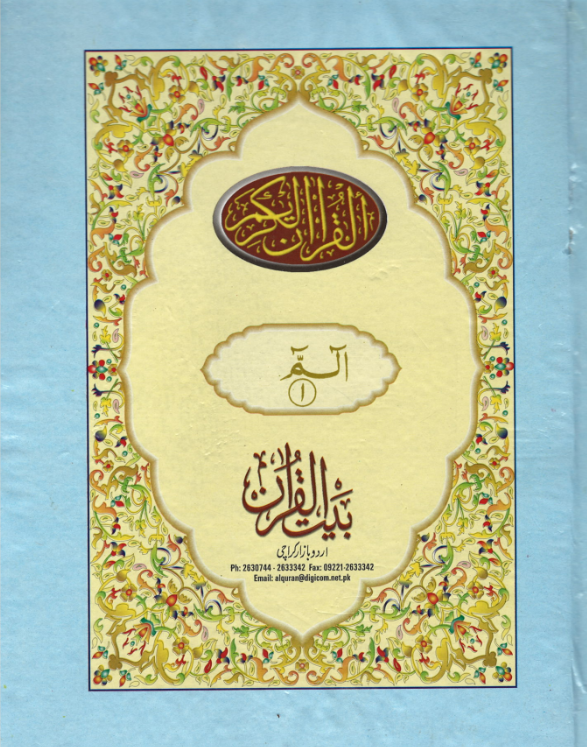 القرآن الكريم
الٓـمّٓ
۱
بیت القرآن
اردو بازار کراچی
Ph: 2630744 - 2633342 Fax: 09221-2633342
Email: alquran@digicom.net.pk